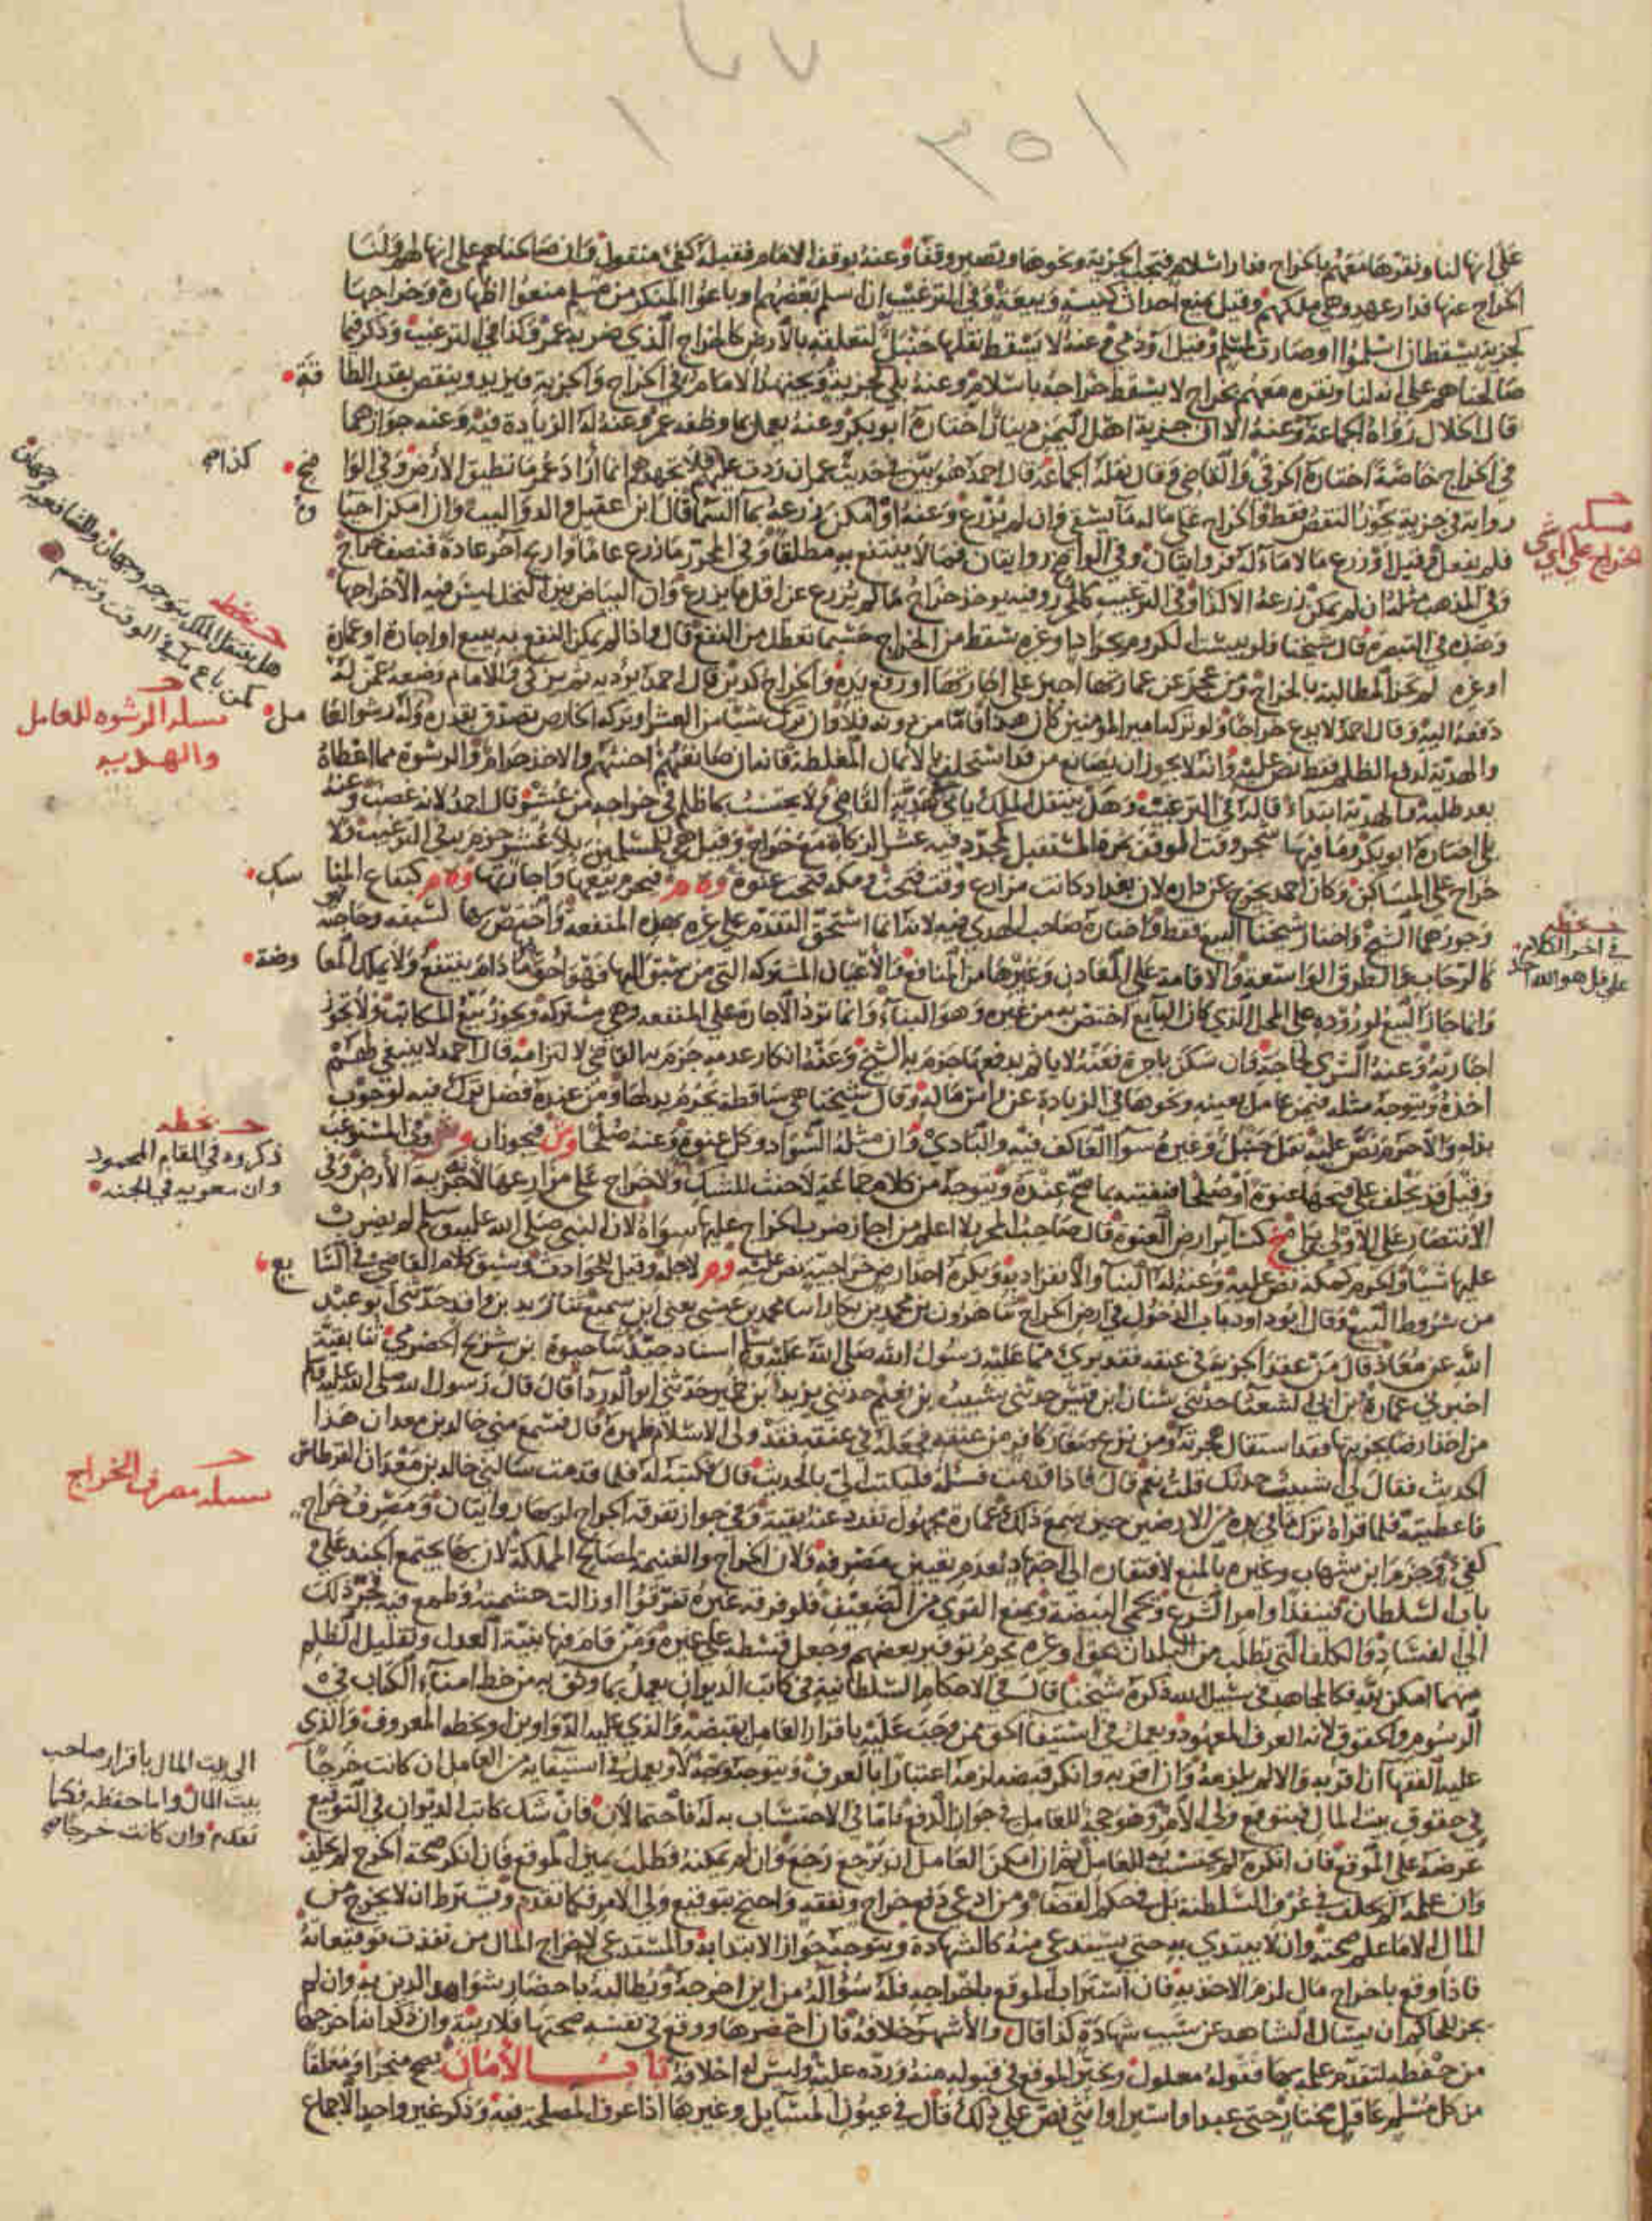 على انها لنا ونقرها معهم بالخراج فدار اسلام فتجب الجزية ونحوها وتصير وقفا وعنه بوقف الامام فقبله كفئ منقول وان صالحناهم على انها لهم ولنا
الخراج عنها فدار عهد وهي ملكهم وقيل يمنع احداث كنيسة وبيعة وفي الترغيب ان اسلم بعضهم او باعوا المنكر من مسلم منعوا اظهاره وخراجها
كجزية يسقط ان اسلموا او صارت لمسلم وقيل او ذمي وعنه لا يسقط نقلها حنبل لتعلقه بالارض كالخراج الذي ضربه عمر وكذا في الترغيب وذكر فيما
صالحناهم على انه لنا ونقره معهم بخراج لا يسقط خراجه باسلام وعنه بلى كجزية ويجتهد الامام في الخراج والجزية ويزيد وينقص بقدر الطا قة
قال الخلال رواه الجماعة وعنه الا ان جزية اهل اليمن دينار اختاره ابو بكر وعنه يعمل بما وظفه عمر وعنه له الزيادة فيه وعنه جوازهما
في الخراج خاصة اختاره الخرقي والقاضي وقال نقله الجماعة قال احمد هو بين في حديث عمر ان زدت عليهم فلا تجهدهم انما اراد عمر ما تطيق الارض وفي الوا ضح
رواية في جزية يجوز النقص فقط والخراج على ماله ما يسقى وان لم يزرع وعنه او امكن زرعه بماء السماء قال ابن عقيل والدواليب وان امكن احيا وه
فلم يفعل وقيل او زرع ما لا ماء له فروايتان وفي الواضح روايتان فيما لا ينتفع به مطلقا وفي المحرر ما زرع عاما واريح آخر عادة فنصف خراج
وفي المذهب مثله ان لم يمكن زرعه الا كذا وفي الترغيب كالمحرر وفيه يوخذ خراج ما لم يزرع عن اقل ما يزرع وان البياض بين النخل ليس فيه الا خراجها
وهذه في التبصرة قال شيخنا فلو يبست الكروم بجراد او غيره سقط من الخراج حسبما تعطل من النفع قال واذا لم يمكن النفع به ببيع او اجارة او عمارة
او غيره لم تجز المطالبة بالخراج ومن عجز عن عمارتها اجبر على اجارتها او رفع يده والخراج كدين قال احمد يوديه ثم يزكي وللامام وضعه عمن له
دفعه اليه وقال احمد لا يدع خراجا ولو تركه امير المؤمنين كان هذا فاما من دونه فلا وان ترك شيئا من العشر او تركه الخارص تصدق بقدره وله رشوة العا مل
والهدية لدفع الظلم فقط نص عليه وانه لا يجوز ان يصانع من قد استحلف بالايمان المغلظة فانه ان صانعهم احنثهم والاخذ حرام والرشوة مما اعطاه
بعد طلبه والهدية ابتداء قاله في الترغيب وهل ينتقل الملك ياتي في هدية القاضي ولا يحتسب بما ظلم في خراجه من عشر قال احمد لانه غصب وعنه
بلى اختاره ابو بكر وما فيها شجر وقت الموقف ثمره المستقبل لمجدد فيه عشر الزكاة مع خراج وقيل هي للمسلمين بلا عشر جزم به في الترغيب ولا
خراج على المساكن وكان احمد يخرج عن داره لان بغداد كانت مزارع وقت فتحت ومكة فتحت عنوة وه م فيحرم بيعها واجارتها وه م كبقاع المنا سك
وجوزهما الشيخ واختار شيخنا البيع فقط واختاره صاحب الهدي فيه لانه انما استحق التقدم على غيره بهذه المنفعة واختص بها لسبقه وحاجته
كالرحاب والطرق الواسعة والاقامة على المعادن وغيرها من المنافع والاعيان المشتركة التي من سبق اليها فهو احق بها ما دام ينتفع ولا يملك المعا وضة
وانما جاز البيع لوروده على المحل الذي كان البايع اختص به من غيره وهو البناء وانما ترد الاجارة على المنفعة وهي مشتركة ويجوز بيع المكاتب ولا يجوز
اجارته وعنه الشرى لحاجة فان سكن باجرة فعنه لا ياثم بدفعها جزم به الشيخ وعنه انكار عدمه جزم به القاضي لالتزامه قال احمد لا ينبغي لهم
اخذه ويتوجه مثله فيمن عامل بعينه ونحوها في الزيادة عن راس ماله وقال شيخنا هي ساقطة يحرم بذلها ومن عنده فضل ترك فيه لوجوب
بذله والا حرم نص عليه نقل حنبل وغيره سواء العاكف فيه والبادي وان مثله السواد وكل عنوة وعنه صلحا وش فيجوزان وش وفي المستوعب
وقيل قد يحلف على فتحها عنوة او صلحا فنفتيه بما صح عنده ويتوجه من كلام جماعة لا حنث للشك ولا خراج على مزارعها لانه جزية الارض وفي
الانتصار على الاولى بلى خ كسائر ارض العنوة قال صاحب المحرر لا اعلم من اجاز ضرب الخراج عليها سواه لان النبي صلى الله عليه وسلم لم يضرب
عليها شيئا والحرم كمكة نص عليه وعنه له البناء والانفراد به ويكره اجدار ض خراجية نص عليه وم لاجله وقيل للحوادث وسبق كلام القاضي في السا بع
من شروط البيع وقال ابو داود باب الدخول في ارض الخراج ثنا هارون بن محمد بن بكار انا محمد بن عيسى يعني ابن سميع ثنا زيد بن واقد حدثني ابو عبد
الله عن معاذ قال من عقد الجزية في عنقه فقد بريء مما عليه رسول الله صلى الله عليه وسلم اسناد جيد ثنا حيوة ابن شريح الحضرمي ثنا بقية
اخبرني عمارة بن ابي الشعثا حدثني سنان ابن قيس حدثني شبيب بن نعيم حدثني يزيد ابن خمير حدثني ابو الدرداء قال قال رسول الله صلى الله عليه وسلم
من اخذ ارضا بجزيتها فقد استقال هجرته ومن نزع صغار كافر من عنقه فجعله في عنقه فقد ولى الاسلام ظهره قال فسمع مني خالد بن معدان هذا
الحديث فقال لي اشبيب حدثك قلت نعم قال فاذا قدمت فسله فليكتب الي بالحديث قال فكتبه له فلما قدمت سالني خالد بن معدان القرطاس
فاعطيته فلما قراه ترك ما في يده من الارضين حين سمع ذلك وعمارة مجهول تفرد عنه بقية وفي جواز تفرقة الخراج لربها روايتان ومصرف خراج
كفئ وجزم ابن شهاب وغيره بالمنع لافتقاره الى اجتهاد لعدم تعيين مصرفه ولان الخراج والغنيمة لمصالح المملكة لان بها يجتمع الجند على
باب السلطان فينفذ اوامر الشرع ويحمي البيضة ويمنع القوي من الضعيف فلو فرقه غيره تفرقوا او زالت حشمته وطمع فيه فجر ذلك
الى الفساد والكلف التي تطلب من البلدان بحق او غيره يحرم توفير بعضهم وجعل قسطه على غيره ومن قام فيها بنية العدل وتقليل الظلم
مهما امكن لله فكالمجاهد في سبيل الله ذكره شيخنا قال في الاحكام السلطانية في كاتب الديوان يعمل بما وثق به من خط امناء الكتاب في
الرسوم والحقوق لانه العرف المعهود ويعمل في استيفاء الحق ممن وجب عليه باقرار العامل بقبضه والذي عليه الدواوين او بخطه المعروف والذي
عليه الفقهاء ان اقر به والا لم يلزمه وان اقر به وانكر قبضه لزمه اعتبارا بالعرف ويتوجه وجه لا ويعمل في استيفايه من العامل ان كانت خرجا
في حقوق بيت المال فبتوقيع ولي الامر وهو حجة للعامل في جواز الدفع فاما في الاحتساب به له فاحتمالان فان شك كاتب الديوان في التوقيع
عرضه على الموقع فان انكره لم يحتسب به للعامل ثم ان امكن العامل ان يرجع رجع وان لم يمكنه فطلب يمين الموقع فان انكر صحة الخرج لم يحلف
وان علمه لم يحلف في عرف السلطنة بل في حكم القضاء ومن ادعى دفع خراج ونفقه واحتج بتوقيع ولي الامر فكما تقدم ويشترط ان لا يخرج من
المال الا ما علم صحته وان لا يبتدي به حتى يستدعى منه كالشهادة ويتوجه جواز الابتداء به والمستدعي لاخراج المال من نفذت توقيعاته
فاذا وقع باخراج مال لزم الاخذ به فان استراب الموقع باخراجه فله سؤاله من اين اخرجه ويطالبه باحضار شواهد الدين به وان لم
يجز للحاكم ان يسال الشاهد عن سبب شهادة كذا قال والاشهر خلافه فان احضرها ووقع في نفسه صحتها فلا ريبة وان ذكر انه اخرجها
من حفظه لتقدم علمه بها فقوله معلول ويخير الموقع في قبوله منه ورده عليه وليس له احلافه باب الامان يصح منجزا ومعلقا
من كل مسلم عاقل مختار حتى عبد او اسير او انثى نص على ذلك قال في عيون المسائل وغيرها اذا عرف المصلحة فيه وذكر غير واحد الاجماع
مسلة
الخراج على اي شي
حـ بخطه
في اخر الكلام
على قل هو الله احد
كذا هو
حـ بخطه
هل ينتقل الملك يتوجه وجهان
مسلة الرشوه للعامل
والهديه
حـ بخطه
ذكروه في المقام المحمود
مسله مصرف الخراج
الى بيت المال باقرار صاحب
بيت المال واما حفظه فكما
تقدم وان كانت خرجا صح